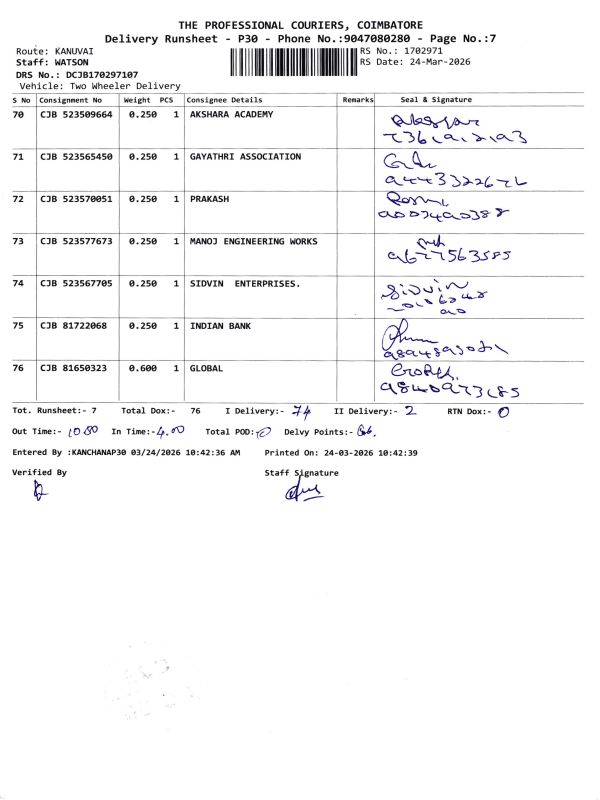 THE PROFESSIONAL COURIERS, COIMBATORE
Delivery Runsheet - P30 - Phone No.:9047080280 - Page No.:7
Route: KANUVAI RS No.: 1702971
Staff: WATSON RS Date: 24-Mar-2026
DRS No.: DCJB170297107
Vehicle: Two Wheeler Delivery
S No Consignment No Weight PCS Consignee Details Remarks Seal & Signature
70 CJB 523509664 0.250 1 AKSHARA ACADEMY
71 CJB 523565450 0.250 1 GAYATHRI ASSOCIATION
72 CJB 523570051 0.250 1 PRAKASH
73 CJB 523577673 0.250 1 MANOJ ENGINEERING WORKS
9677563585
74 CJB 523567705 0.250 1 SIDVIN ENTERPRISES. Sidvin
75 CJB 81722068 0.250 1 INDIAN BANK
76 CJB 81650323 0.600 1 GLOBAL
Tot. Runsheet:- 7 Total Dox:- 76 I Delivery:- 74 II Delivery:- 2 RTN Dox:- 0
Out Time:- In Time:- 4.00 Total POD:- Delvy Points:-
Entered By :KANCHANAP30 03/24/2026 10:42:36 AM Printed On: 24-03-2026 10:42:39
Verified By Staff Signature